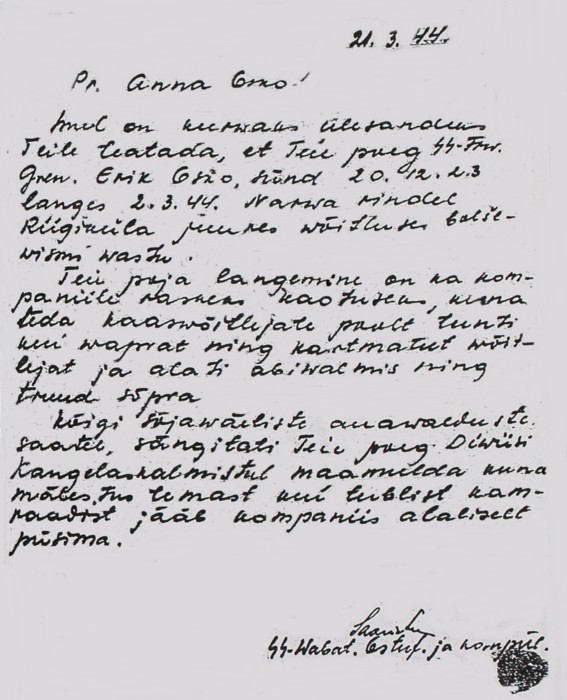 21. 3. 44.
Pr. Anna Osxo!
Mul on kurwaks ülesandeks
Teile teatada, et Teie poeg SS-Frw.
Gren. Erik Osxo, sünd 20. 12. 23
langes 2. 3. 44. Narwa rindel
Riigiküla juures wõitluses bolše-
wismi wastu.
Teie poja langemine on ka kom-
paniile raskeks kaotuseks, kuna
teda kaaswõitlejate poolt tunti
kui waprat ning kartmatut wõit-
lejat ja alati abiwalmis ning
truud sõpra
Kõigi sõjawäeliste auawalduste
saatel, sängitati Teie poeg Diwiisi
Kangelaskalmistul maamulda kuna
mälestus temast kui tublist kam-
raadist jääb kompaniis alaliselt
püsima.
SS-Wabat. Ostuf. ja kompül.